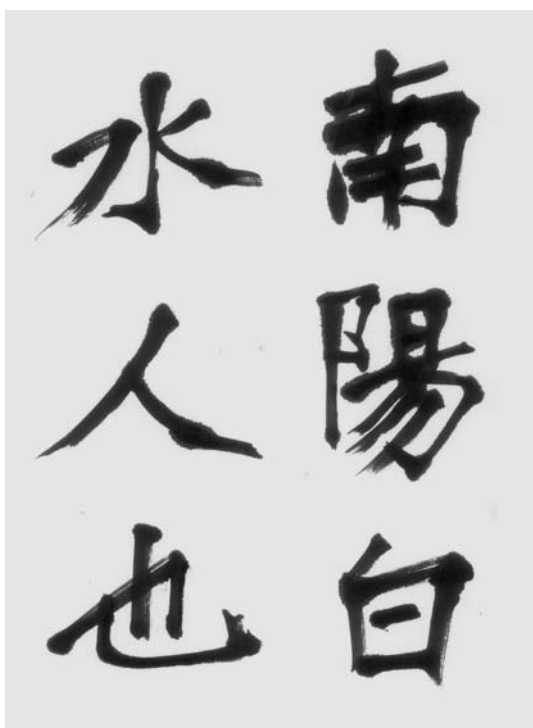 南陽白
水人也